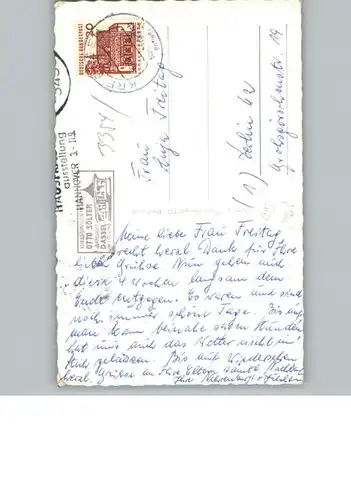 DEUTSCHE BUNDESPOST
20
545
HAUSFRAU
ausstellung
HANNOVER 3.-11.9.
OTTO SOLTER
DASSEL
3354/
Frau
Inge Freitag
(1) Berlin 62
Grossgörschenstr. 19
Meine liebe Frau Freitag
recht herzl. Dank für Ihre
lieben Grüsse. Nun gehen auch
diese 4 Wochen langsam dem
Ende entgegen. Es waren und sind
noch immer schöne Tage. Bis auf
man kann beinahe sagen Stunden
hat uns auch das Wetter nicht im
Stich gelassen. Bis auf Wiedersehen
herzl. Grüsse an Ihre Eltern
Ihre